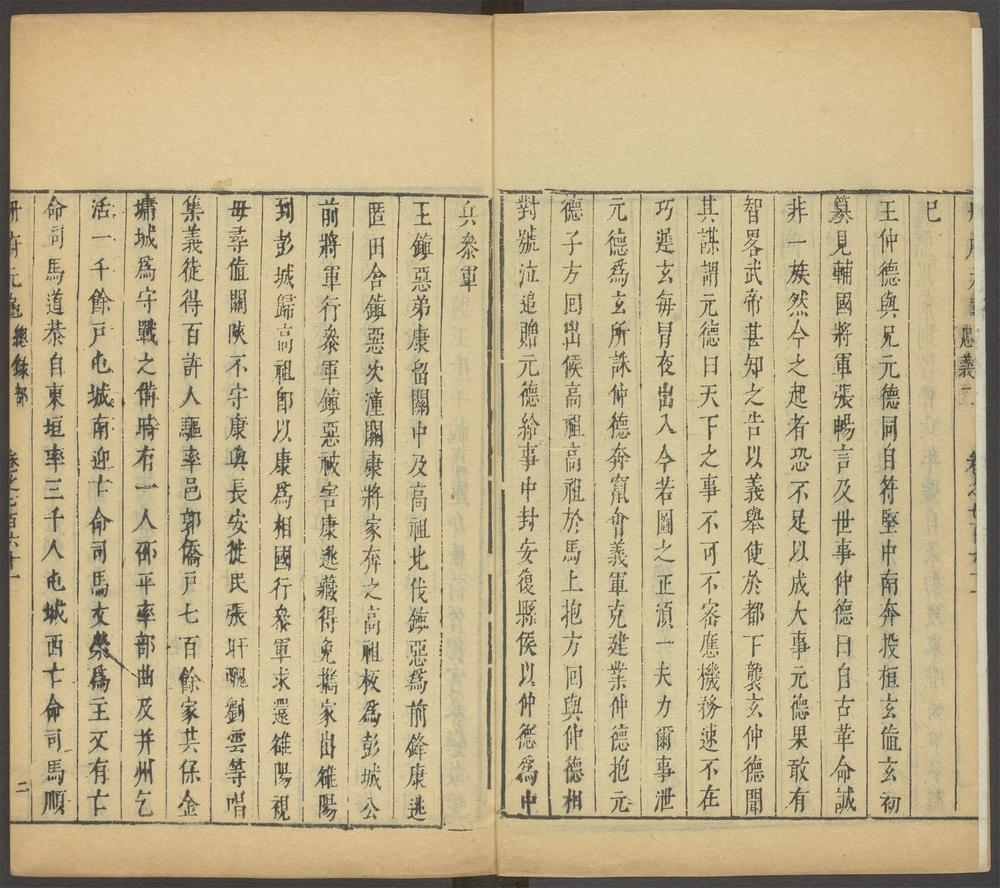 忠義
巳
王仲德與兄元德同自符堅中南奔投桓玄值玄初
篡見輔國將軍張暢言及世事仲德曰自古革命誠
非一族然今之起者恐不足以成大事元德果敢有
智畧武帝甚知之告以義舉使於都下襲玄仲德聞
其謀謂元德曰天下之事不可不密應機務速不在
巧遲玄每冐夜出入今若圖之正湏一夫力爾事泄
元德爲玄所誅仲德奔竄會義軍克建業仲德抱元
德子方回出候高祖高祖於馬上抱方回與仲德相
對號泣追贈元德給事中封安復縣侯以仲德爲中
兵叅軍
王鎮惡弟康留關中及高祖北伐鎮惡爲前鋒康逃
匿田舍鎮惡次潼關康將家奔之高祖板爲彭城公
前將軍行叅軍鎮惡被害康逃藏得免携家出雒陽
到彭城歸高祖卽以康爲相國行叅軍求還雒陽視
母尋值關陜不守康與長安徙民張旰醜劉雲等唱
集義徒得百許人驅率邑郭僑戶七百餘家共保金
墉城爲守戰之備時有一人邵平率部曲及并州乞
活一千餘戸屯城南迎亡命司馬文榮爲主又有亡
命司馬道恭自東垣率三千人屯城西亡命司馬順
冊府元龜 總錄部 卷之七百六十一 二